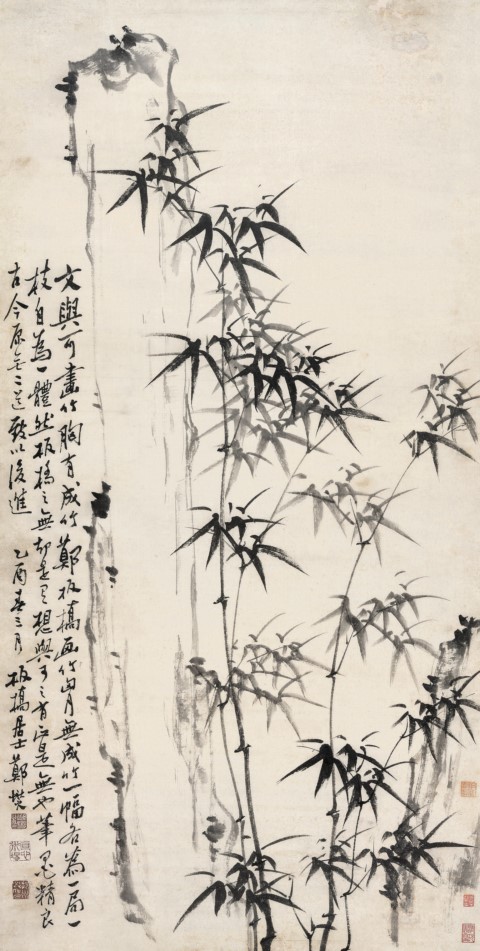 文與可畫竹胸有成竹鄭板橋画竹胸無成竹一幅各為一局一
枝自為一體然板橋之無却是有想與可之有亦是無也筆墨精良
古今原無二道敢以後進 乙酉春三月板橋居士鄭燮